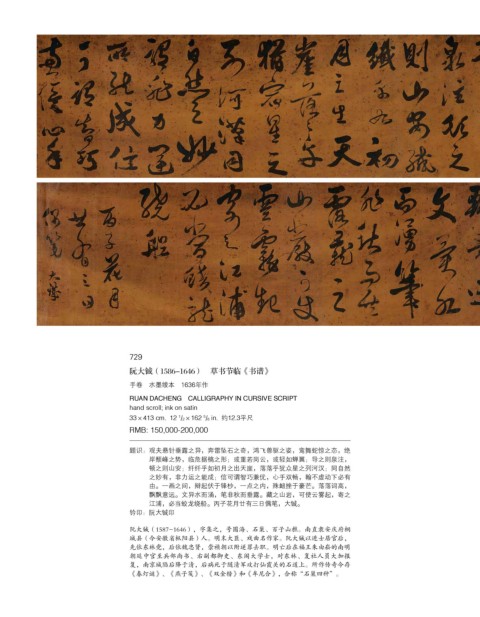 泉注頓之
則山安纖
纖乎如初
月之生天
崖落々乎
猶眾星之
列河漢同
自然之妙
謂非力運
所能成信
可謂智巧
兼優心手
而湧筆
非秋而垂
露藏之
山巖可使
雲霧起
寄之江浦
必當蛟龍
繞船
丙子花月
廿有三日
偶筆 大鋮
729
阮大铖（1586-1646） 草书节临《书谱》
手卷 水墨绫本 1636年作
RUAN DACHENG CALLIGRAPHY IN CURSIVE SCRIPT
hand scroll; ink on satin
33×413 cm. 12 1/2×162 5/8 in. 约12.3平尺
RMB: 150,000-200,000
题识：观夫悬针垂露之异，奔雷坠石之奇，鸿飞兽骇之姿，鸾舞蛇惊之态，绝
岸颓峰之势，临危据槁之形；或重若岗云，或轻如蝉翼；导之则泉注，
顿之则山安；纤纤乎如初月之出天崖，落落乎犹众星之列河汉；同自然
之妙有，非力运之能成；信可谓智巧兼优，心手双畅，翰不虚动下必有
由。一画之间，辩起伏于锋杪，一点之内，殊衄挫于豪芒。落落词高，
飘飘意远。文异水而涌，笔非秋而垂露。藏之山岩，可使云雾起，寄之
江浦，必当蛟龙绕船。丙子花月廿有三日偶笔，大铖。
钤印：阮大铖印
阮大铖（1587-1646），字集之，号圆海、石巢、百子山樵。南直隶安庆府桐
城县（今安徽省枞阳县）人。明末大臣，戏曲名作家。阮大铖以进士居官后，
先依东林党，后依魏忠贤，崇祯朝以附逆罪去职。明亡后在福王朱由崧的南明
朝廷中官至兵部尚书、右副都御史、东阁大学士，对东林、复社人员大加报
复，南京城陷后降于清，后病死于随清军攻打仙霞关的石道上。所作传奇今存
《春灯谜》、《燕子笺》、《双金榜》和《牟尼合》，合称“石巢四种”。